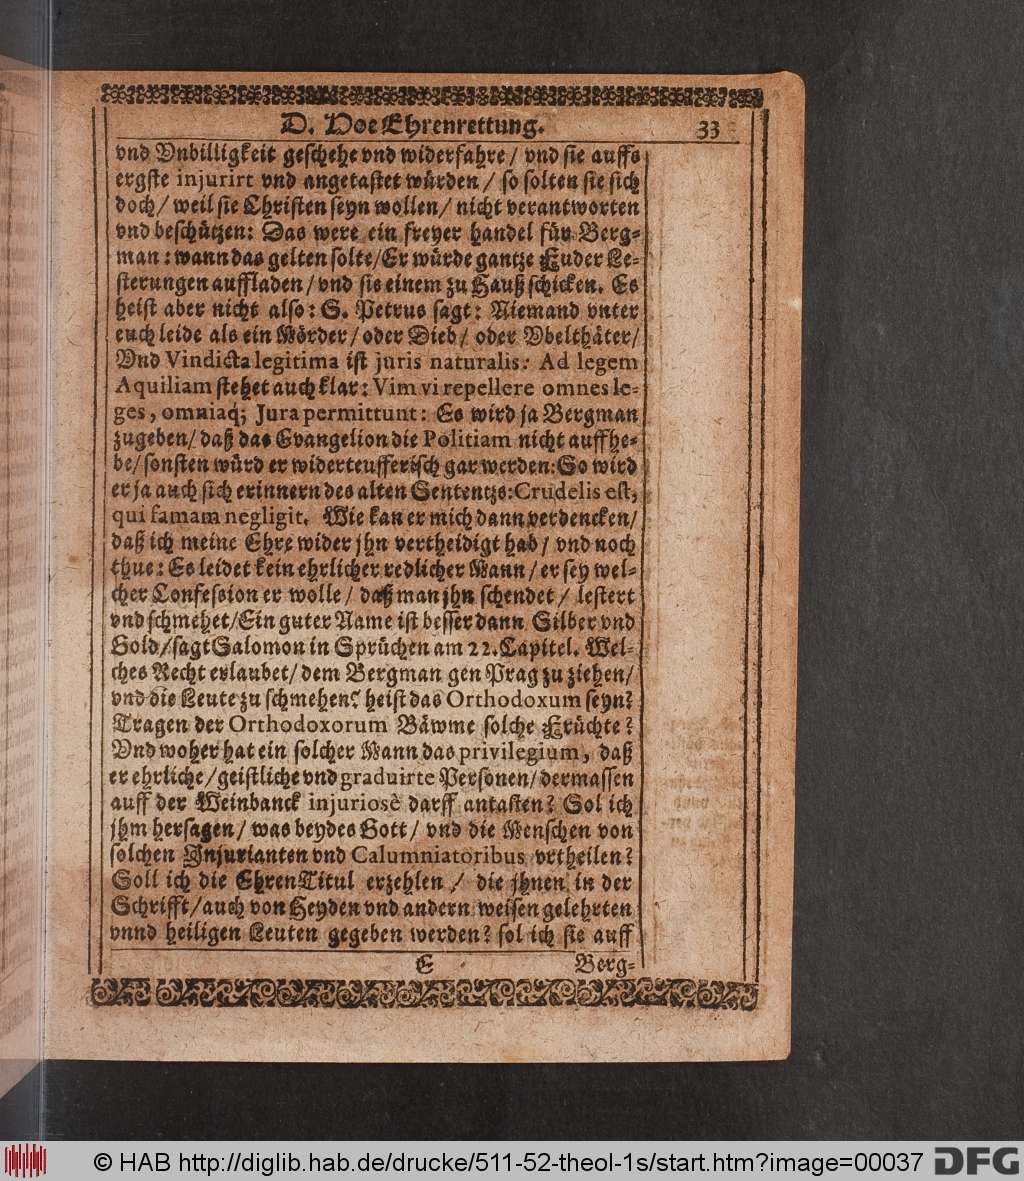 D. Hoe Ehrenrettung. 33
vnd Vnbilligkeit geschehe vnd widerfahre / vnd sie auffs
ergste injurirt vnd angetastet würden / so solten sie sich
doch / weil sie Christen seyn wollen / nicht verantworten
vnd beschützen: Das were ein freyer handel für Berg-
man: wann das gelten solte / Er würde gantze Fuder Le-
sterungen auffladen / vnd sie einem zu Hauß schicken. Es
heist aber nicht also: S. Petrus sagt: Niemand vnter
euch leide als ein Mörder / oder Dieb / oder Vbelthäter /
Vnd Vindicta legitima ist juris naturalis: Ad legem
Aquiliam stehet auch klar: Vim vi repellere omnes le-
ges, omniaq; Jura permittunt: Es wird ja Bergman
zugeben / daß das Evangelion die Politiam nicht auffhe-
be / sonsten würd er widerteufferisch gar werden: So wird
er ja auch sich erinnern des alten Sententzs: Crudelis est,
qui famam negligit. Wie kan er mich dann verdencken /
daß ich meine Ehre wider jhn vertheidigt hab / vnd noch
thue: Es leidet kein ehrlicher redlicher Mann / er sey wel-
cher Confession er wolle / daß man jhn schendet / lestert
vnd schmehet / Ein guter Name ist besser dann Silber vnd
Gold / sagt Salomon in Sprüchen am 22. Capitel. Wel-
ches Recht erlaubet / dem Bergman gen Prag zu ziehen /
vnd die Leute zu schmehen? heist das Orthodoxum seyn?
Tragen der Orthodoxorum Bäwme solche Früchte?
Vnd woher hat ein solcher Mann das privilegium, daß
er ehrliche / geistliche vnd graduirte Personen / dermassen
auff der Weinbanck injuriosè darff antasten? Sol ich
jhm hersagen / was beydes Gott / vnd die Menschen von
solchen Injurianten vnd Calumniatoribus vrtheilen?
Soll ich die EhrenTitul erzehlen / die jhnen in der
Schrifft / auch von Heyden vnd andern weisen gelehrten
vnnd heiligen Leuten gegeben werden? sol ich sie auff
E Berg-
© HAB http://diglib.hab.de/drucke/511-52-theol-1s/start.htm?image=00037 DFG